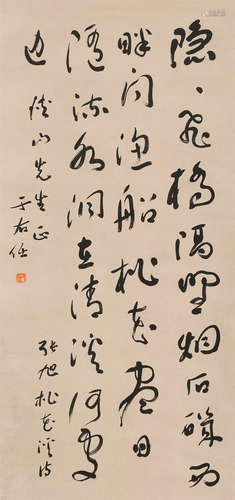 隐〻飛橋隔野烟石磯西
畔問漁船桃花盡日
隨流水洞在清溪何處
边
張旭桃花溪诗
山先生正
于右任